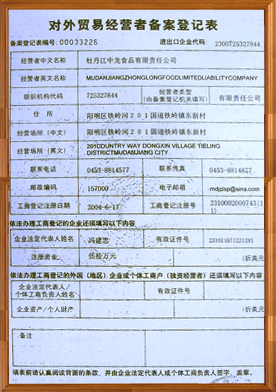 对外贸易经营者备案登记表
备案登记表编号：00033226 进出口企业代码：2300725327844
经营者中文名称 牡丹江中龙食品有限责任公司
经营者英文名称 MUDANJIANGZHONGLONGFOODLIMITEDLIABILITYCOMPANY
组织机构代码 725327844 经营者类型（由备案登记机关填写） 有限责任公司
住 所 阳明区铁岭河201国道铁岭镇东新村
经营场所（中文） 阳明区铁岭河201国道铁岭镇东新村
经营场所（英文） 201COUNTRY WAY DONGXIN VILLAGE TIELING
DISTRICTMUDANJIANG CITY
联系电话 0453-8814577 联系传真 0453-8814877
邮政编码 157000 电子邮箱 mdjzlsp@sina.com
工商登记注册日期 2004-6-17 工商登记注册号 2310002000743(1
1)
依法办理工商登记的企业还须填写以下内容
企业法定代表人姓名 冯建志 有效证件号
注册资金 伍拾万元 （折美元）
依法办理工商登记的外国（地区）企业或个体工商户（独资经营者）还须填写以下内容
企业法定代表人/
个体工商负责人姓名 有效证件号
企业资产/个人财产 （折美元）
备注
填表前请认真阅读背面的条款，并由企业法定代表人或个体工商负责人签字、盖章。